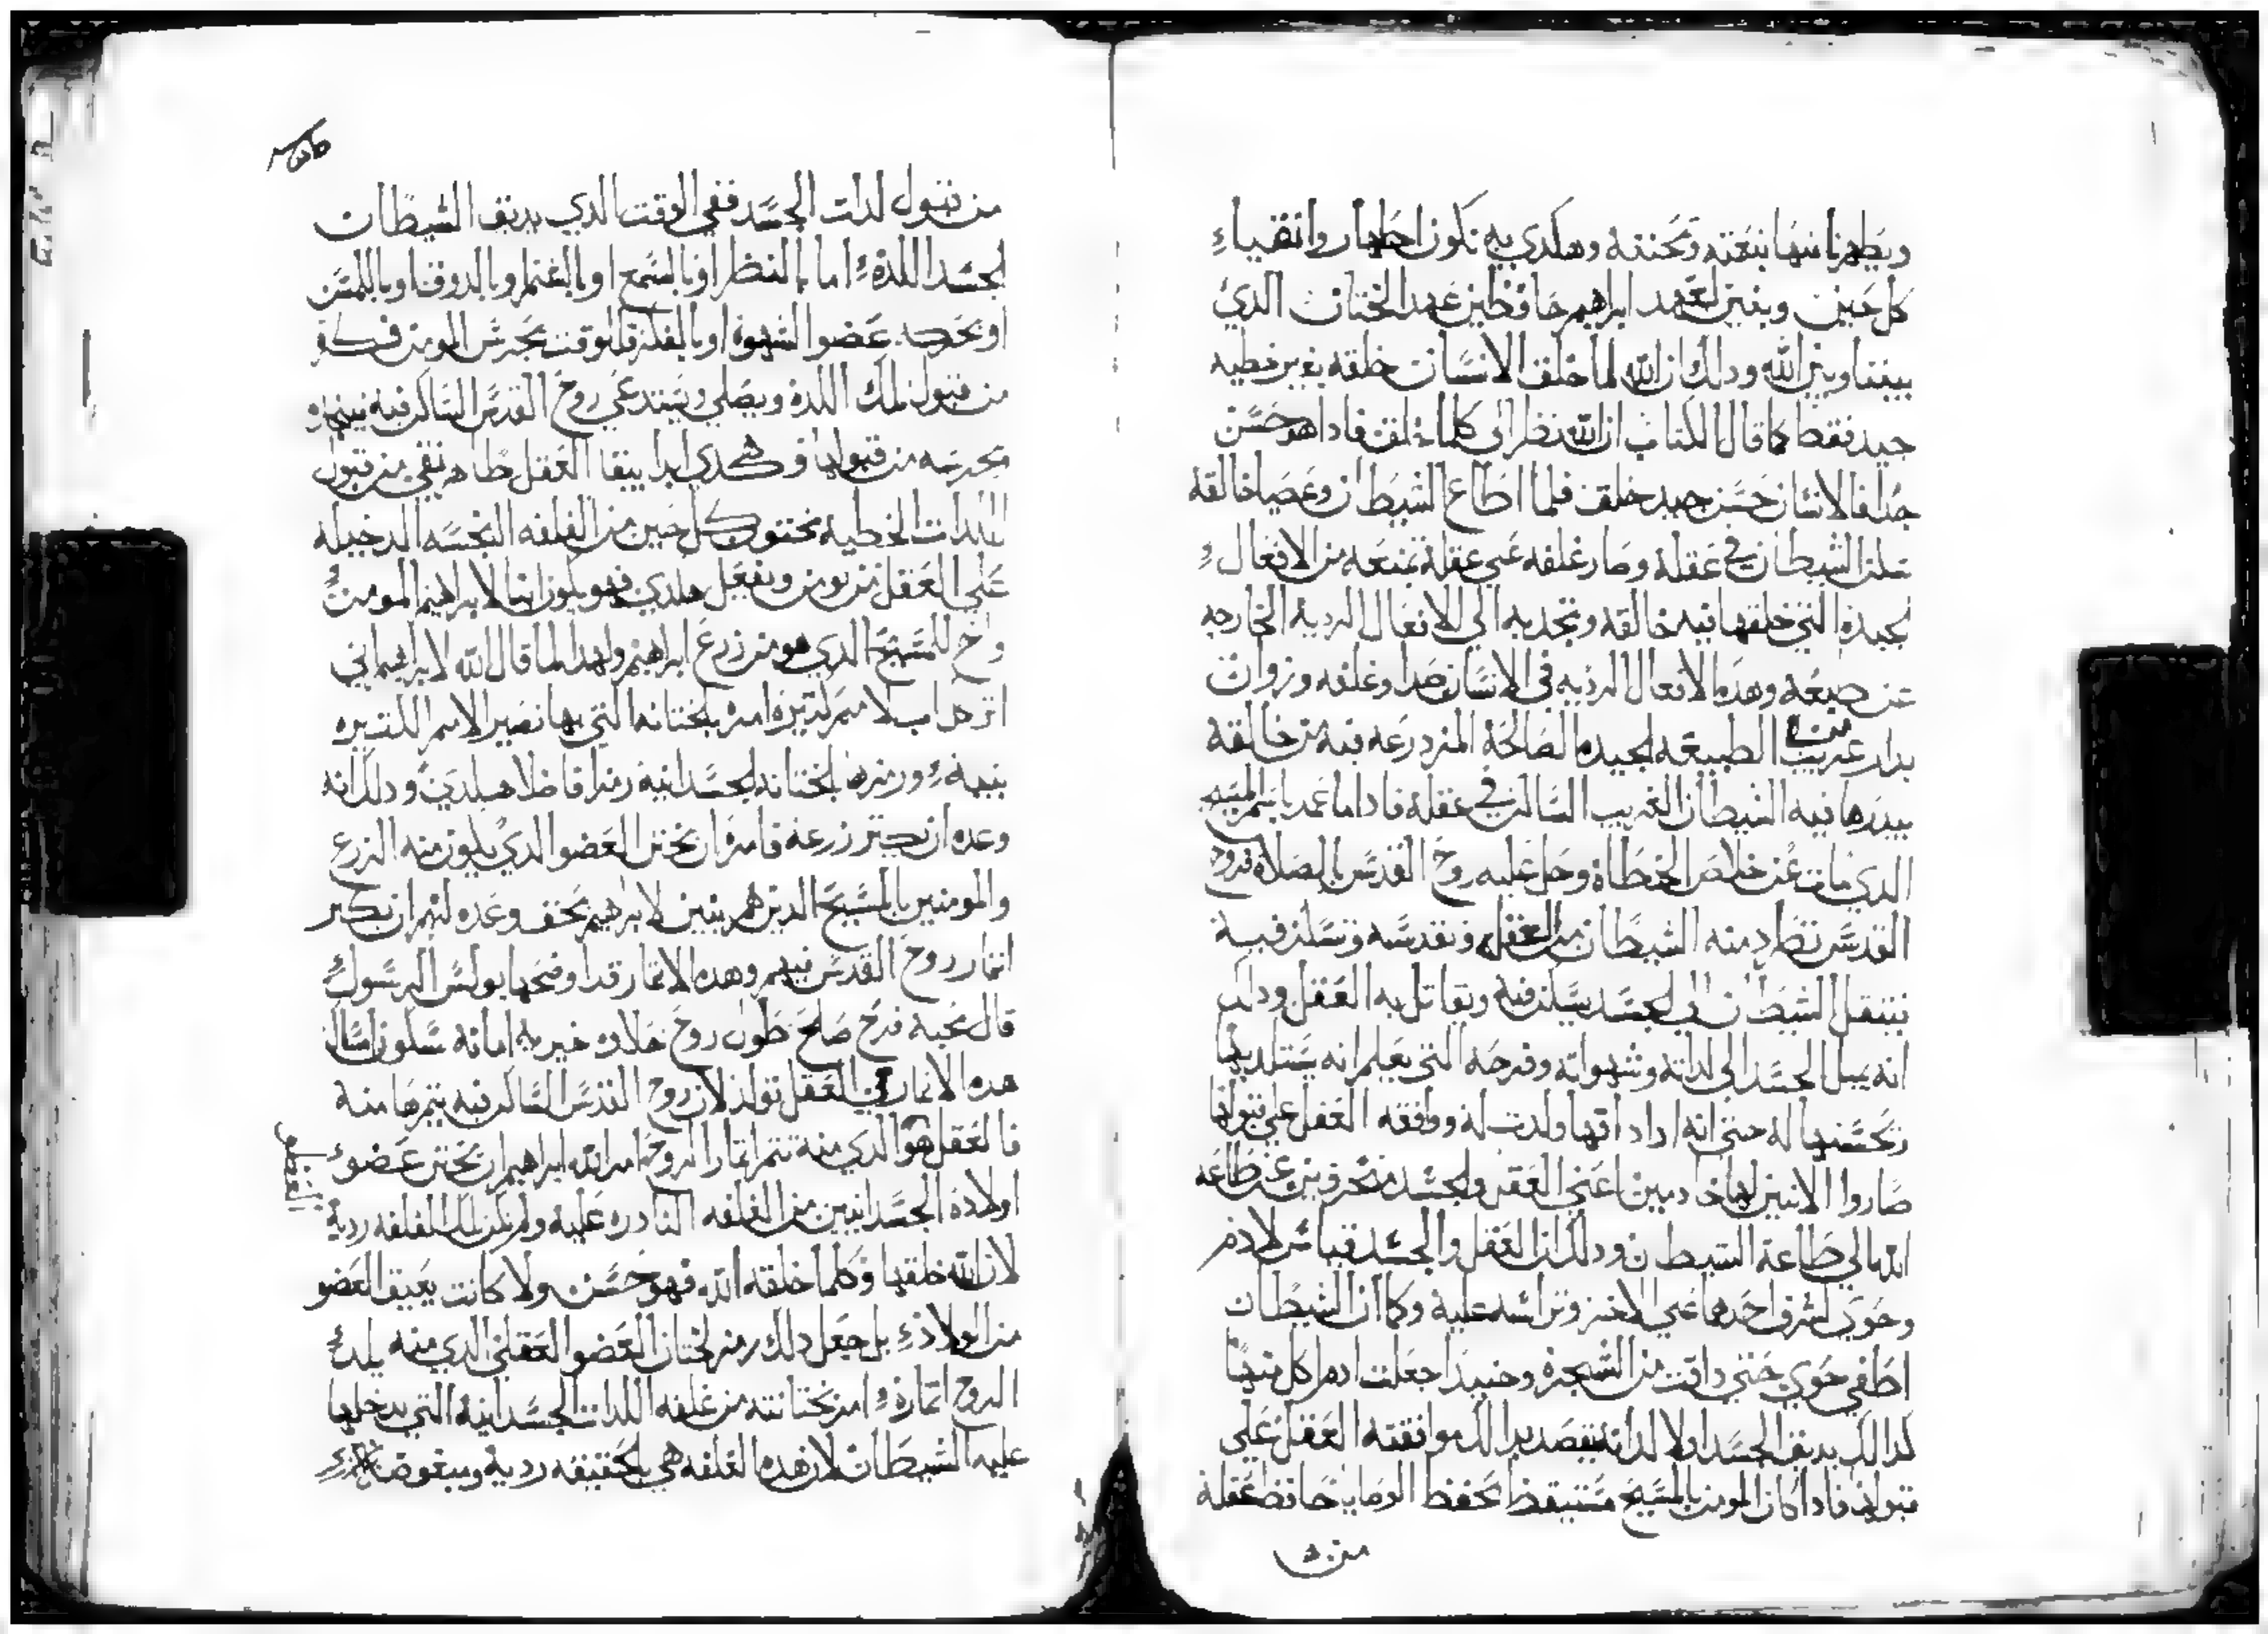 ويطهرنا منها بنعمته وتحننه وهكدي به نكون اطهار وانقياء
كل حين وبنين لعهد ابراهيم حافظين عهد الختان الدي
بيننا وبين الله ودلك ان الله لما خلق الانسان خلقه بغير خطيه
جيد فقط كما قال الكتاب ان الله نظر الى كلما خلق فادا هو حسن
الانسان حسن جيد خلق فلما اطاع الشيطان وعصا خالقه
سكن الشيطان في عقله وصار غلفه على عقله تمنعه من الافعال
الجيده التي خلقها فيه خالقه وتجدبه الى الافعال الرديه الخارجه
عن طبعه وهده الافعال الرديه في الانسان صدا وغلفه وزوان
بدار غريب من الطبيعه الجيده الصالحة المزدرعه فيه من خالقه
يبدرها فيه الشيطان الغريب الساكن في عقله فادا ما عمد باسم المسيح
الدي مات عن خلاص الخطاه وحل عليه روح القدس بالصلاة فروح
القدس تطرد منه الشيطان من العقل وتقدسه وتسكن فيه
فينتقل الشيطان الى الجسد يسكن فيه ويقاتل به العقل ودلك
انه يميل الجسد الى لداته وشهواته وفرحه التي يعلم انه يستلد بها
ويحسنها له حتى انه ادا داقها ولدت له ووافقه العقل على قبولها
صاروا الاتنين لها خادمين اعني العقل والجسد منحرفين عن طاعه
الله الى طاعة الشيطان ودلك ان العقل والجسد قياس لادم
وحوى اشرف احدهما على الاخر وتراسه عليه وكما ان الشيطان
اطغى حوى حتى داقت من الشجره وحينيد جعلت ادم اكل منها
كدالك يديق الجسد اولا لداته يقصد بدالك موافقته العقل على
قبولها فادا كان المومن بالمسيح مستيقظا يحفظ الوصايا حافظ عقله
من
من قبول لدات الجسد ففي الوقت الدي يديق الشيطان
الجسد اللده اما بالنظر او بالسمع او بالشم او بالدوق او باللمس
او بحركه عضو الشهوة او بالفكر فللوقت يحرس المومن فكره
من قبول تلك اللده ويصلي ويستدعي روح القدس الساكن فيه
تحرسه من قبولها وهكدي ابدا يبقا العقل طاهر نقي من قبول
اللدات الخطيه مختون كل حين من الغلفه النجسه الدخيله
على العقل من يومن ويفعل هكدي فهو يكون ابنا لابراهيم المومن
واخ للمسيح الدي هو من زرع ابراهيم ولهدا لما قال الله لابراهيم اني
اب لامم كتيره امره بالختانه التي بها تصير الامم الكتيره
بنيه ورمزها بالختانه الجسدانيه رمزا فاضلا هكدي ودلك انه
وعده ان يكتر زرعه فامره ان يختن العضو الدي يكون منه الزرع
والمومنين بالمسيح الدين هم بنين لابراهيم بحق وعده لهم ان يكتر
اتمار روح القدس فيهم وهده الاتمار قد اوضحها بولس الرسول
قال محبه فرح صلح طول روح حلاوه خيريه امانه
هده الاتمار في العقل تولد لان روح القدس الساكن فيه يتمرها منه
فالعقل هو الدي منه تتمر اتمار الروح امر الله ابراهيم ان يختن عضو
اولاده الجسدانيين من الغلفه عليه ولم تكن تلك الغلفه رديه
لان الله خلقها وكلما خلقه الله فهو حسن ولا كانت يعيق العضو
من الولاد بل جعل دلك رمز لختان العضو العقلي الدي منه يلد
الروح اتماره امر بختانته من غلفه اللدات الجسدانيه التي يدخلها
عليه الشيطان لان هده الغلفه هي بالحقيقه رديه ومبغوضه